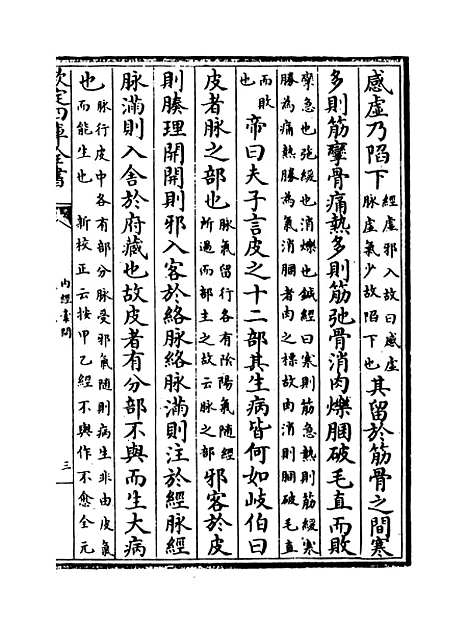 感虛乃陷下經虛邪入故曰感虛脉虛氣少故陷下也其留於筋骨之間寒
多則筋攣骨痛熱多則筋弛骨消肉爍䐃破毛直而敗
攣急也弛緩也消爍也鍼經曰寒則筋急熱則筋緩寒勝為痛熱勝為氣消䐃者肉之標故肉消則䐃破毛直
而敗也帝曰夫子言皮之十二部其生病皆何如岐伯曰
皮者脉之部也脉氣留行各有陰陽氣隨經所過而部主之故云脉之部邪客於皮
則腠理開開則邪入客於絡脉絡脉滿則注於經脉經
脉滿則入舍於府藏也故皮者有分部不與而生大病
也脉行皮中各有部分脉受邪氣隨則病生非由皮氣而能生也新校正云按甲乙經不與作不愈全元
欽定四庫全書
內經素問
三